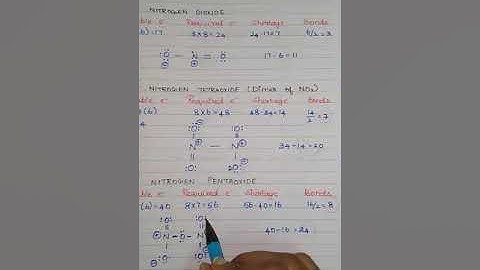 NITROGEN DIOXIDE
ble e⁻ Required e⁻ Shortage Bonds
6)=17 3x8=24 24-17=7 6/2=3
:Ö - N = Ö
⊖ ⊕
17-6=11
NITROGEN TETRAOXIDE (Dimer of NO₂)
ble e⁻ Required e⁻ Shortage Bonds
(6) 8x6=48 48-34=14 14/2=7
4
:O: :O:
N - N
:O: :O:
34-14=20
NITROGEN PENTAOXIDE
ble e⁻ Required e⁻ Shortage Bonds
(6)=40 8x7=56 56-40=16 16/2=8
:O: :O:
⊕N-O-N
:O: :O:
40-16=24